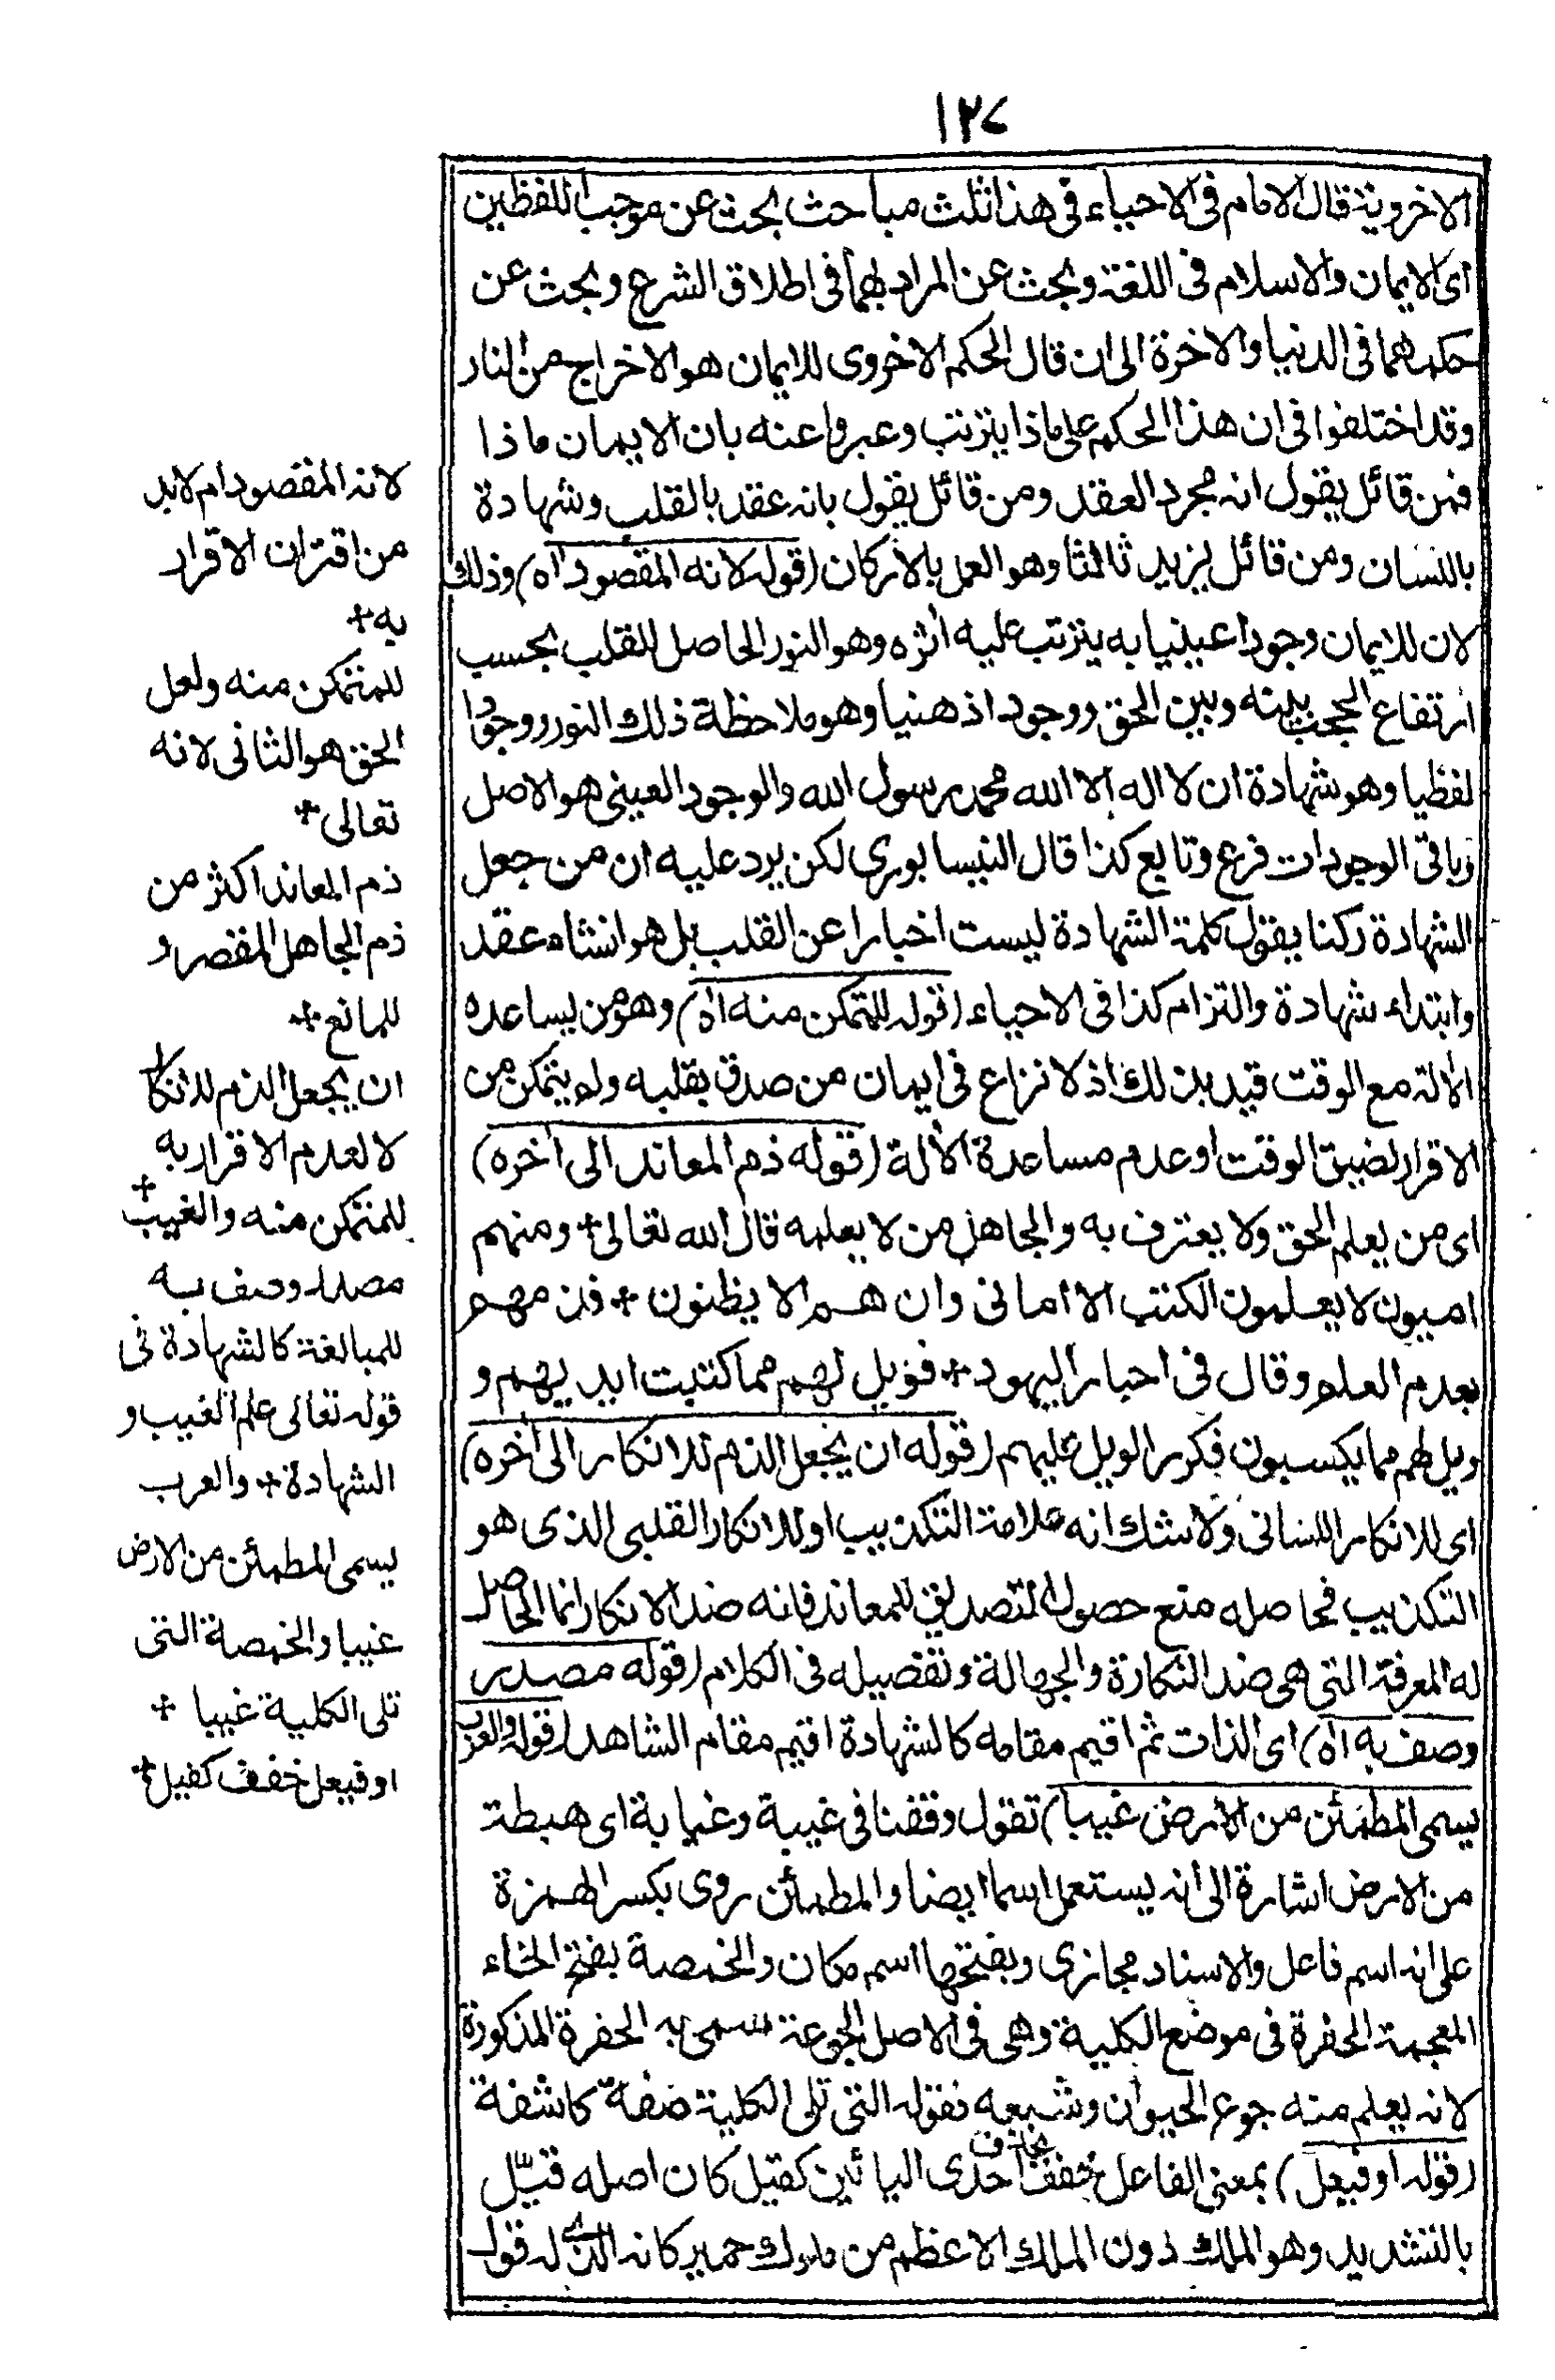 ١٣٧
الاخروية قال الامام فى الاحياء فى هذا ثلث مباحث بحث عن موجب اللفظين
اى الايمان والاسلام فى اللغة وبحث عن المراد بهما فى اطلاق الشرع وبحث عن
حكمهما فى الدنيا والاخرة الى ان قال الحكم الاخروى للايمان هو الاخراج من النار
وقد اختلفوا فى ان هذا الحكم على ماذا يترتب وعبروا عنه بان الايمان ماذا
فمن قائل يقول انه مجرد العقد ومن قائل يقول بانه عقد بالقلب وشهادة
باللسان ومن قائل يزيد ثالثا وهو العمل بالاركان (قوله لانه المقصود اه) وذلك
لان للايمان وجودا عينيا به يترتب عليه اثره وهو النور الحاصل للقلب بحسب
ارتفاع الحجب بينه وبين الحق ووجودا ذهنيا وهو ملاحظة ذلك النور ووجودا
لفظيا وهو شهادة ان لا اله الا الله محمد رسول الله والوجود العينى هو الاصل
وباقى الوجودات فرع وتابع كذا قال النيسابورى لكن يرد عليه ان من جعل
الشهادة ركنا يقول كلمة الشهادة ليست اخبارا عن القلب بل هو انشاء عقد
وابتداء شهادة والتزام كذا فى الاحياء (قوله للمتمكن منه اه) وهو من يساعده
الالة مع الوقت قيد بذلك اذ لا نزاع فى ايمان من صدق بقلبه ولم يتمكن من
الاقرار لضيق الوقت او عدم مساعدة الالة (قوله ذم المعاند الى اخره)
اى من يعلم الحق ولا يعترف به والجاهل من لا يعلمه قال الله تعالى + ومنهم
اميون لا يعلمون الكتب الا امانى وان هم الا يظنون + فذمهم
بعدم العلم وقال فى احبار اليهود + فويل لهم مما كتبت ايديهم و
ويل لهم مما يكسبون فكرر الويل عليهم (قوله ان يجعل الذم للانكار الى اخره)
اى للانكار اللسانى ولا شك انه علامة التكذيب او للانكار القلبى الذى هو
التكذيب فحاصله منع حصول التصديق للمعاند فانه ضد الانكار انما الحاصل
له المعرفة التى هى ضد النكارة والجهالة وتفصيله فى الكلام (قوله مصدر
وصف به اه) اى الذات ثم اقيم مقامه كالشهادة اقيم مقام الشاهد (قوله والعرب
يسمى المطمئن من الارض غيبا) تقول وقفنا فى غيبة وغيابة اى هبطة
من الارض اشارة الى انه يستعمل اسما ايضا والمطمائن روى بكسر الهمزة
على انه اسم فاعل والاسناد مجازى وبفتحها اسم مكان والخمصة بفتح الخاء
المعجمة الحفرة فى موضع الكلية وهى فى الاصل الجوعة سمى به الحفرة المذكورة
لانه يعلم منه جوع الحيوان وشبعه فقوله التى تلى الكلية صفة كاشفة
(قوله او فيعل) بمعنى الفاعل خفف بحذف احدى اليائين كقيل كان اصله قيّل
بالتشديد وهو الملك دون الملك الاعظم من ملوك حمير كانه الذى له قول
لانه المقصود ام لابد
من اقتران الاقرار
به +
للمتمكن منه ولعل
الحق هو الثانى لانه
تعالى +
ذم المعاند اكثر من
ذم الجاهل المقصر و
للمانع +
ان يجعل الذم للانكار
لا لعدم الاقرار به
+
للمتمكن منه والغيب
مصدر وصف به
للمبالغة كالشهادة فى
قوله تعالى علم الغيب و
الشهادة + والعرب
يسمى المطمائن من الارض
غيبا والخمصة التى
تلى الكلية غيبا +
او فيعل خفف كقيل +